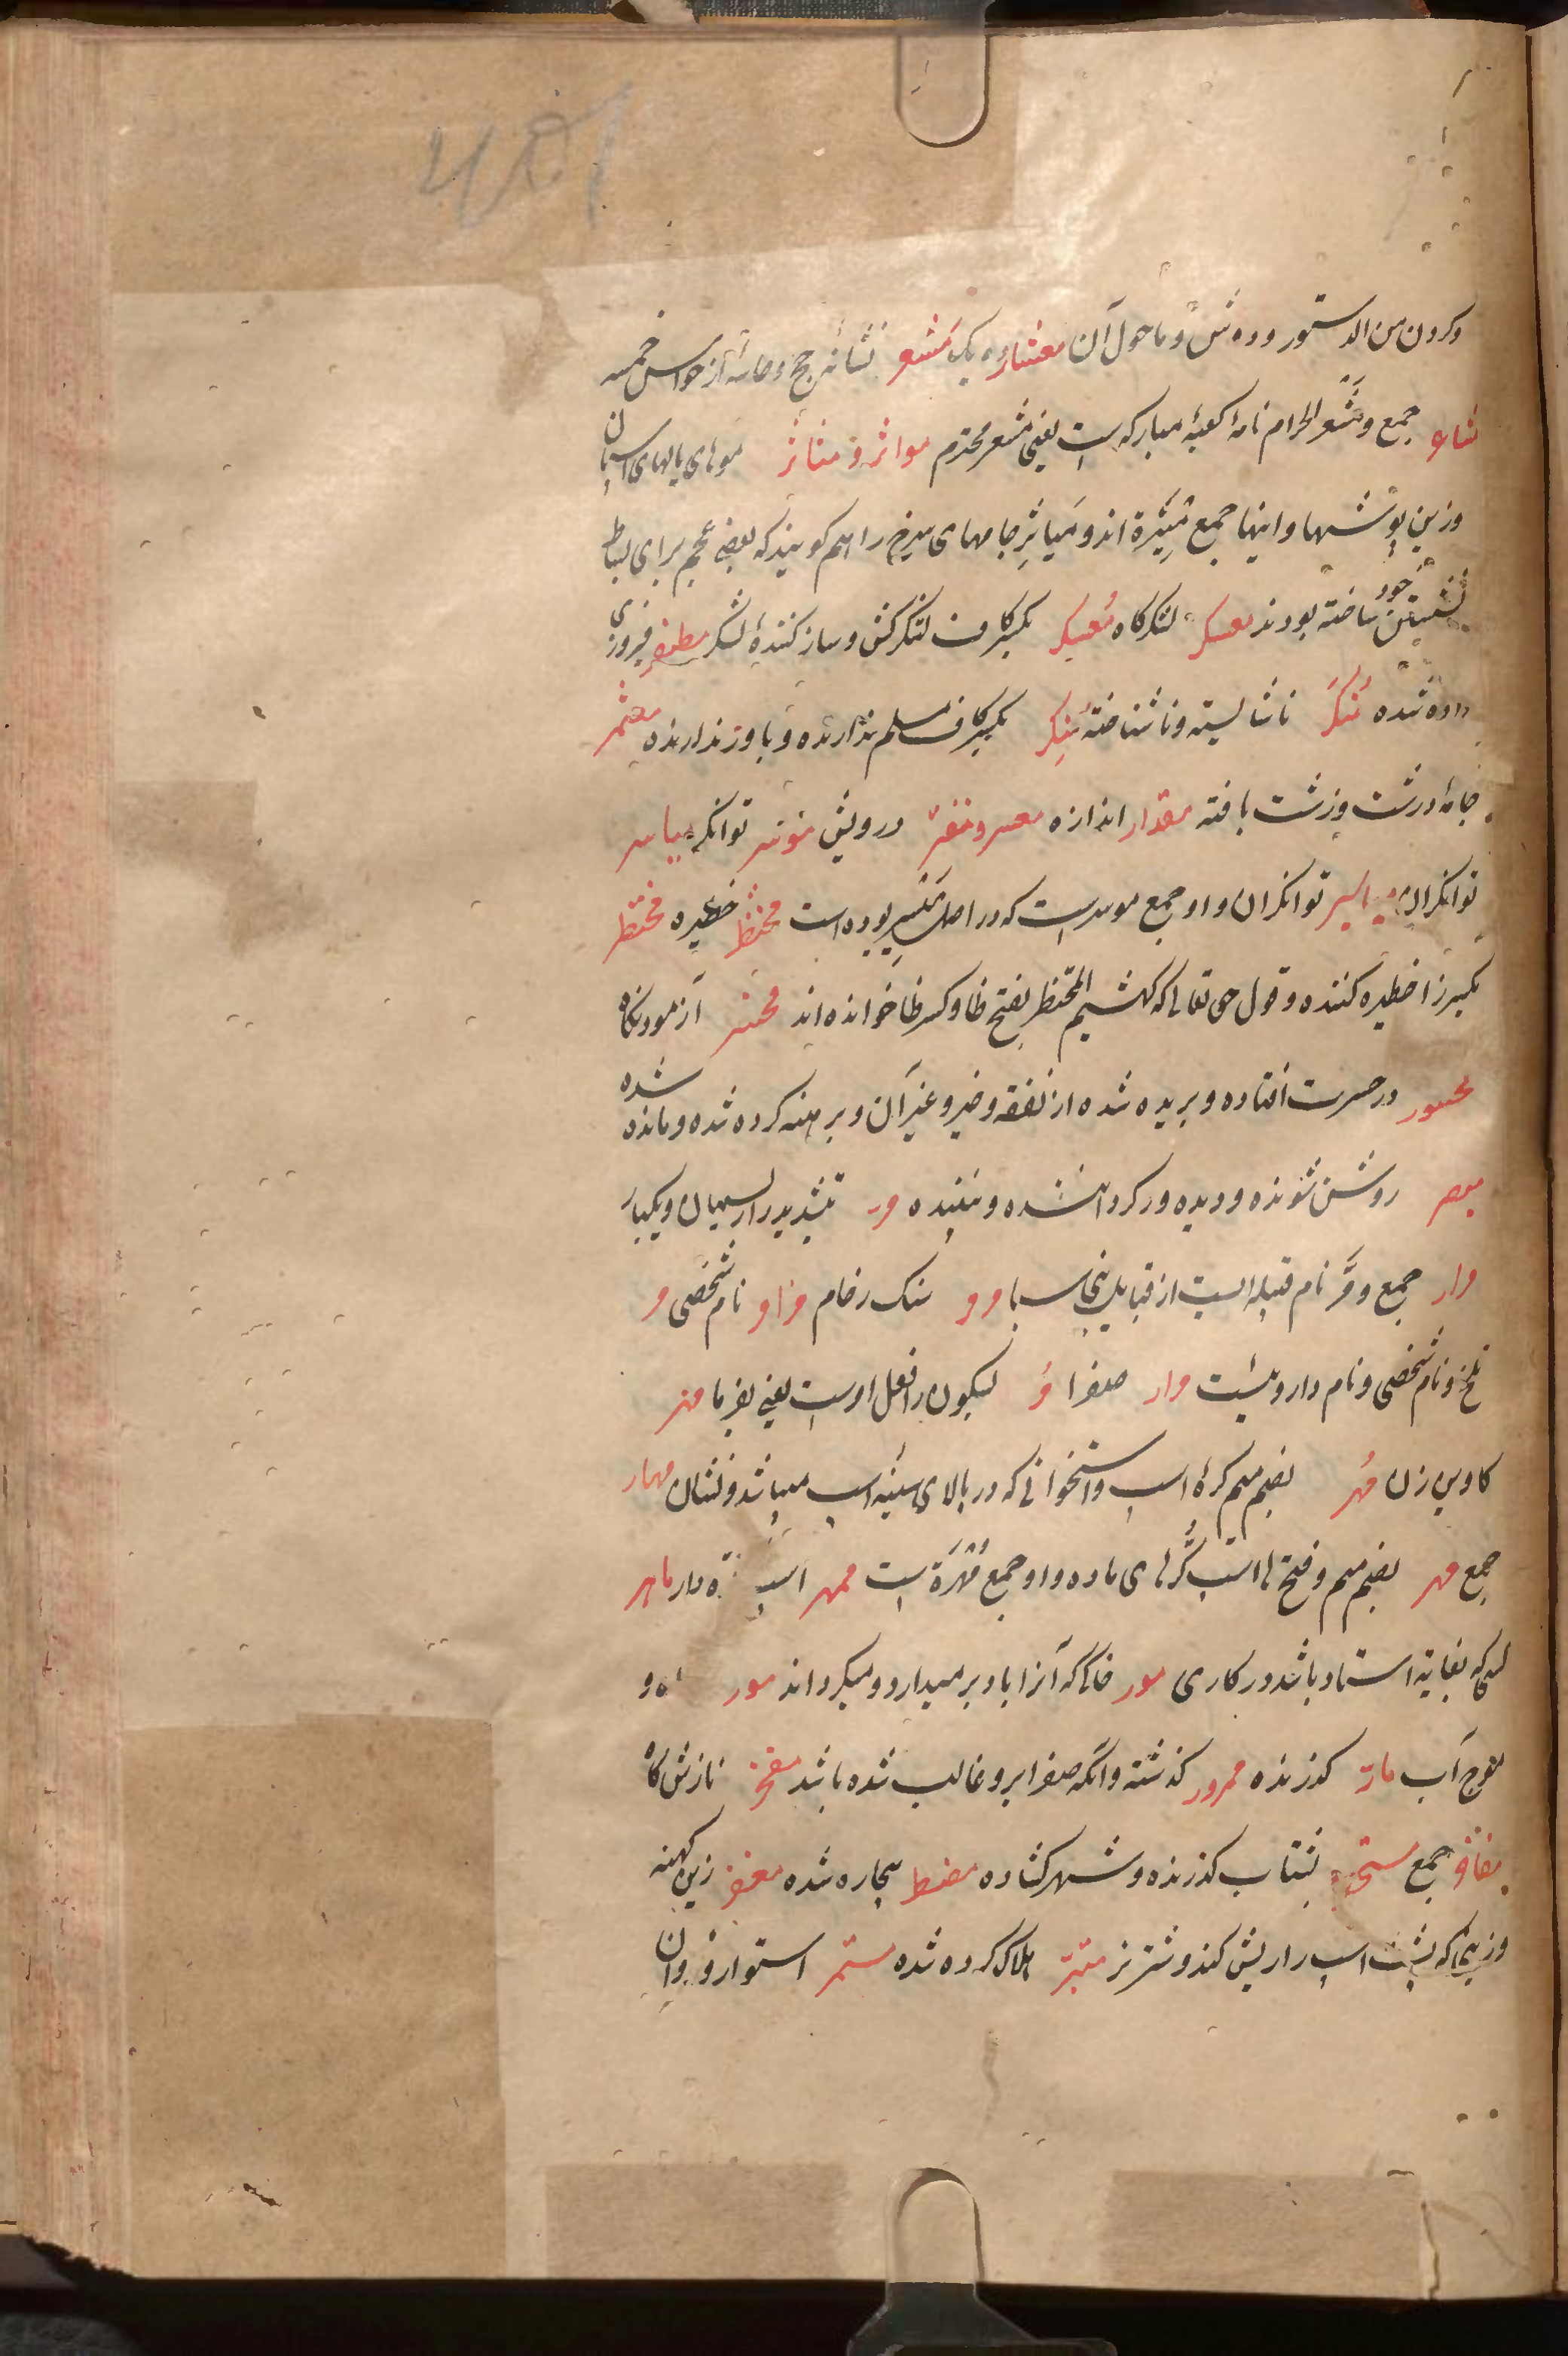 و کردن من الدستور و ده شش و ماحول آن معشار ده یک مشعر نشانهٔ حج و حاسهٔ از حواس خمسه
مشاعر جمع و مشعر الحرام نام کعبهٔ مبارکه است یعنی مشعر محترم مواثر و میاثر موهای یالهای اسپان
و زین پوشها و اینها جمع مِیْثَرة اند و میاثِر جامهای سرخ را هم گویند که بعضی عجم برای بساط
نشستن خود ساخته بودند معسکر لشکرگاه مُعسکِر بکسر کاف لشکرکش و ساز کنندهٔ لشکر مظفر فیروزی
داده شده مُنکَر ناشایسته و ناشناخته مُنکِر بکسر کاف مسلم ندارنده و باور ندارنده
جامهٔ درشت و زشت بافته مقدار اندازه معسر و مقتر درویش موسر توانگر میاسر
توانگران میاسیر توانگران و او جمع موسر است که در اصل مُیْسِر بوده است محتظَر خطیره محتظِر
بکسر ظا خطیره کننده و قول حق تعالی که کهشیم المحتظر بفتح ظا و کسر ظا خوانده اند آزمودنگاه
محسور در حسرت افتاده و بریده شده از نفقه و خیر و غیر آن و برهنه کرده شده و مانده شده
مبصر روشن شونده و دیده ور گردانیده شده و بیننده مرّ بتشدید را ریسمان و یکبار
مرار جمع و مُرّ نام قبیله ایست از قبایل بنی مرو سنک رخام نام شخصی مر
تلخ و نام شخصی و نام دارویست مرار صفرا مُر بسکون را فعل اوست یعنی بفرما مهر
کاوین زن مُهر بضم میم کرهٔ اسپ و استخوانی که در بالای سینه اسپ میباشد و نشان مهار
جمع مهر بضم میم و فتح ها اسپ کرهای ماده و او جمع مُهْرَة است ممهر اسپ کره دار ماهر
کسی که بغایة استاد باشد در کاری مور خاکی که آنرا باد بر میدارد و میکرداند مور راه و
موج آب مارّ گذرنده ممرور گذشته و آنکه صفرا برو غالب شده باشد مفخر نازش گاه
مفاخر جمع بشتاب گذرنده و شهر گشاده مضطر بیچاره شده زین کهنه
و زینی که پشت اسپ را ریش کند و شتر نیز متبّر هلاک کرده شده مستمر استوار و روان